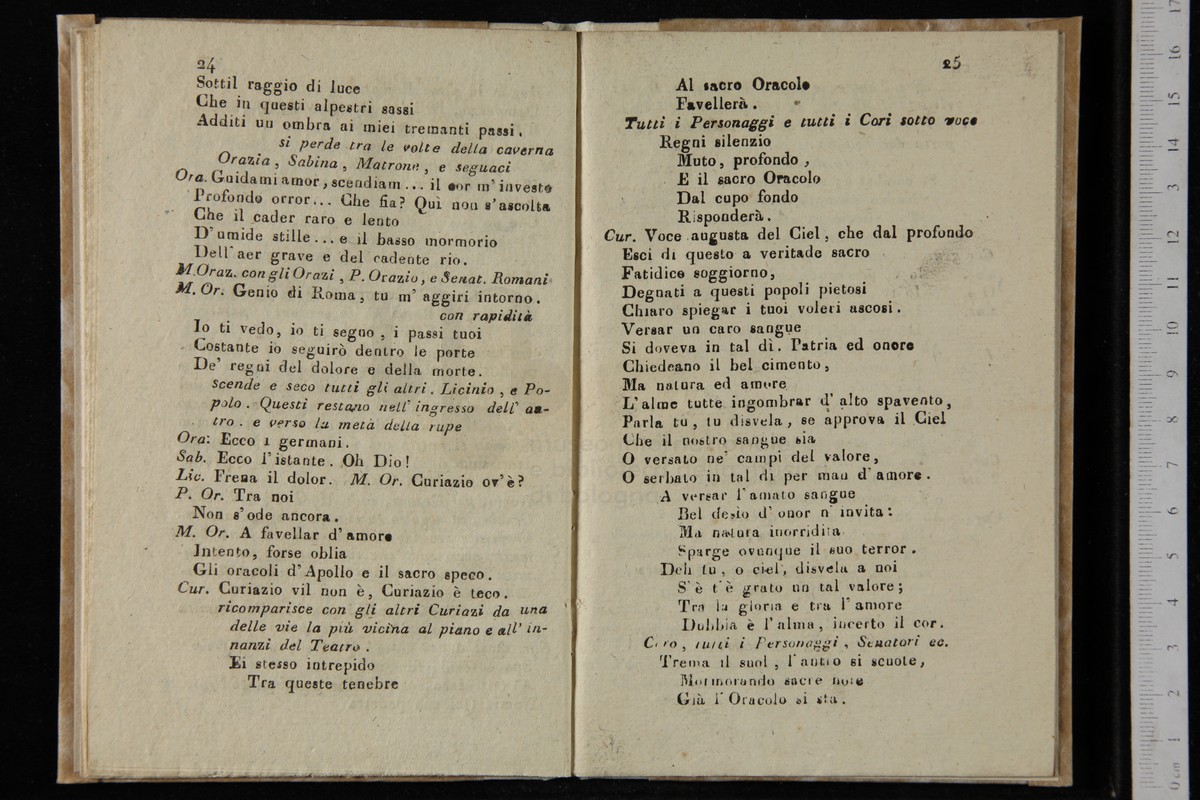 24
Sottil raggio di luce
Che in questi alpestri sassi
Additi un ombra ai miei tremanti passi.
si perde tra le volte della caverna
Orazia, Sabina, Matrone, e seguaci
Ora. Guidami amor, scendiam... il cor m'investe
Profondo orror... Che fia? Quì non s'ascolta
Che il cader raro e lento
D'umide stille... e il basso mormorio
Dell'aer grave e del cadente rio.
M.Oraz. con gli Orazi, P. Orazio, e Senat. Romani
M. Or. Genio di Roma, tu m'aggiri intorno.
con rapidità
Io ti vedo, io ti seguo, i passi tuoi
Costante io seguirò dentro le porte
De' regni del dolore e della morte.
scende e seco tutti gli altri. Licinio, e Po-
polo. Questi restano nell'ingresso dell'an-
tro. e verso la metà della rupe
Ora: Ecco i germani.
Sab. Ecco l'istante. Oh Dio!
Lic. Frena il dolor. M. Or. Curiazio ov'è?
P. Or. Tra noi
Non s'ode ancora.
M. Or. A favellar d'amore
Intento, forse oblia
Gli oracoli d'Apollo e il sacro speco.
Cur. Curiazio vil non è, Curiazio è teco.
ricomparisce con gli altri Curiazi da una
delle vie la più vicina al piano e all'in-
nanzi del Teatro.
Ei stesso intrepido
Tra queste tenebre
25
Al sacro Oracolo
Favellerà.
Tutti i Personaggi e tutti i Cori sotto voce
Regni silenzio
Muto, profondo,
E il sacro Oracolo
Dal cupo fondo
Risponderà.
Cur. Voce augusta del Ciel, che dal profondo
Esci di questo a veritade sacro
Fatidico soggiorno,
Degnati a questi popoli pietosi
Chiaro spiegar i tuoi voleri ascosi.
Versar un caro sangue
Si doveva in tal dì. Patria ed onore
Chiedeano il bel cimento,
Ma natura ed amore
L'alme tutte ingombrar d'alto spavento,
Parla tu, tu disvela, se approva il Ciel
Che il nostro sangue sia
O versato ne' campi del valore,
O serbato in tal di per man d'amore.
A versar l'amato sangue
Bel desio d'onor n'invita:
Ma natura inorridita
Sparge ovunque il suo terror.
Deh tu, o ciel, disvela a noi
S'è t'è grato un tal valore;
Tra la gloria e tra l'amore
Dubbia è l'alma, incerto il cor.
Coro, tutti i Personaggi, Senatori ec.
Trema il suol, l'antro si scuote,
Mormorando sacre note
Già l'Oracolo si sta.